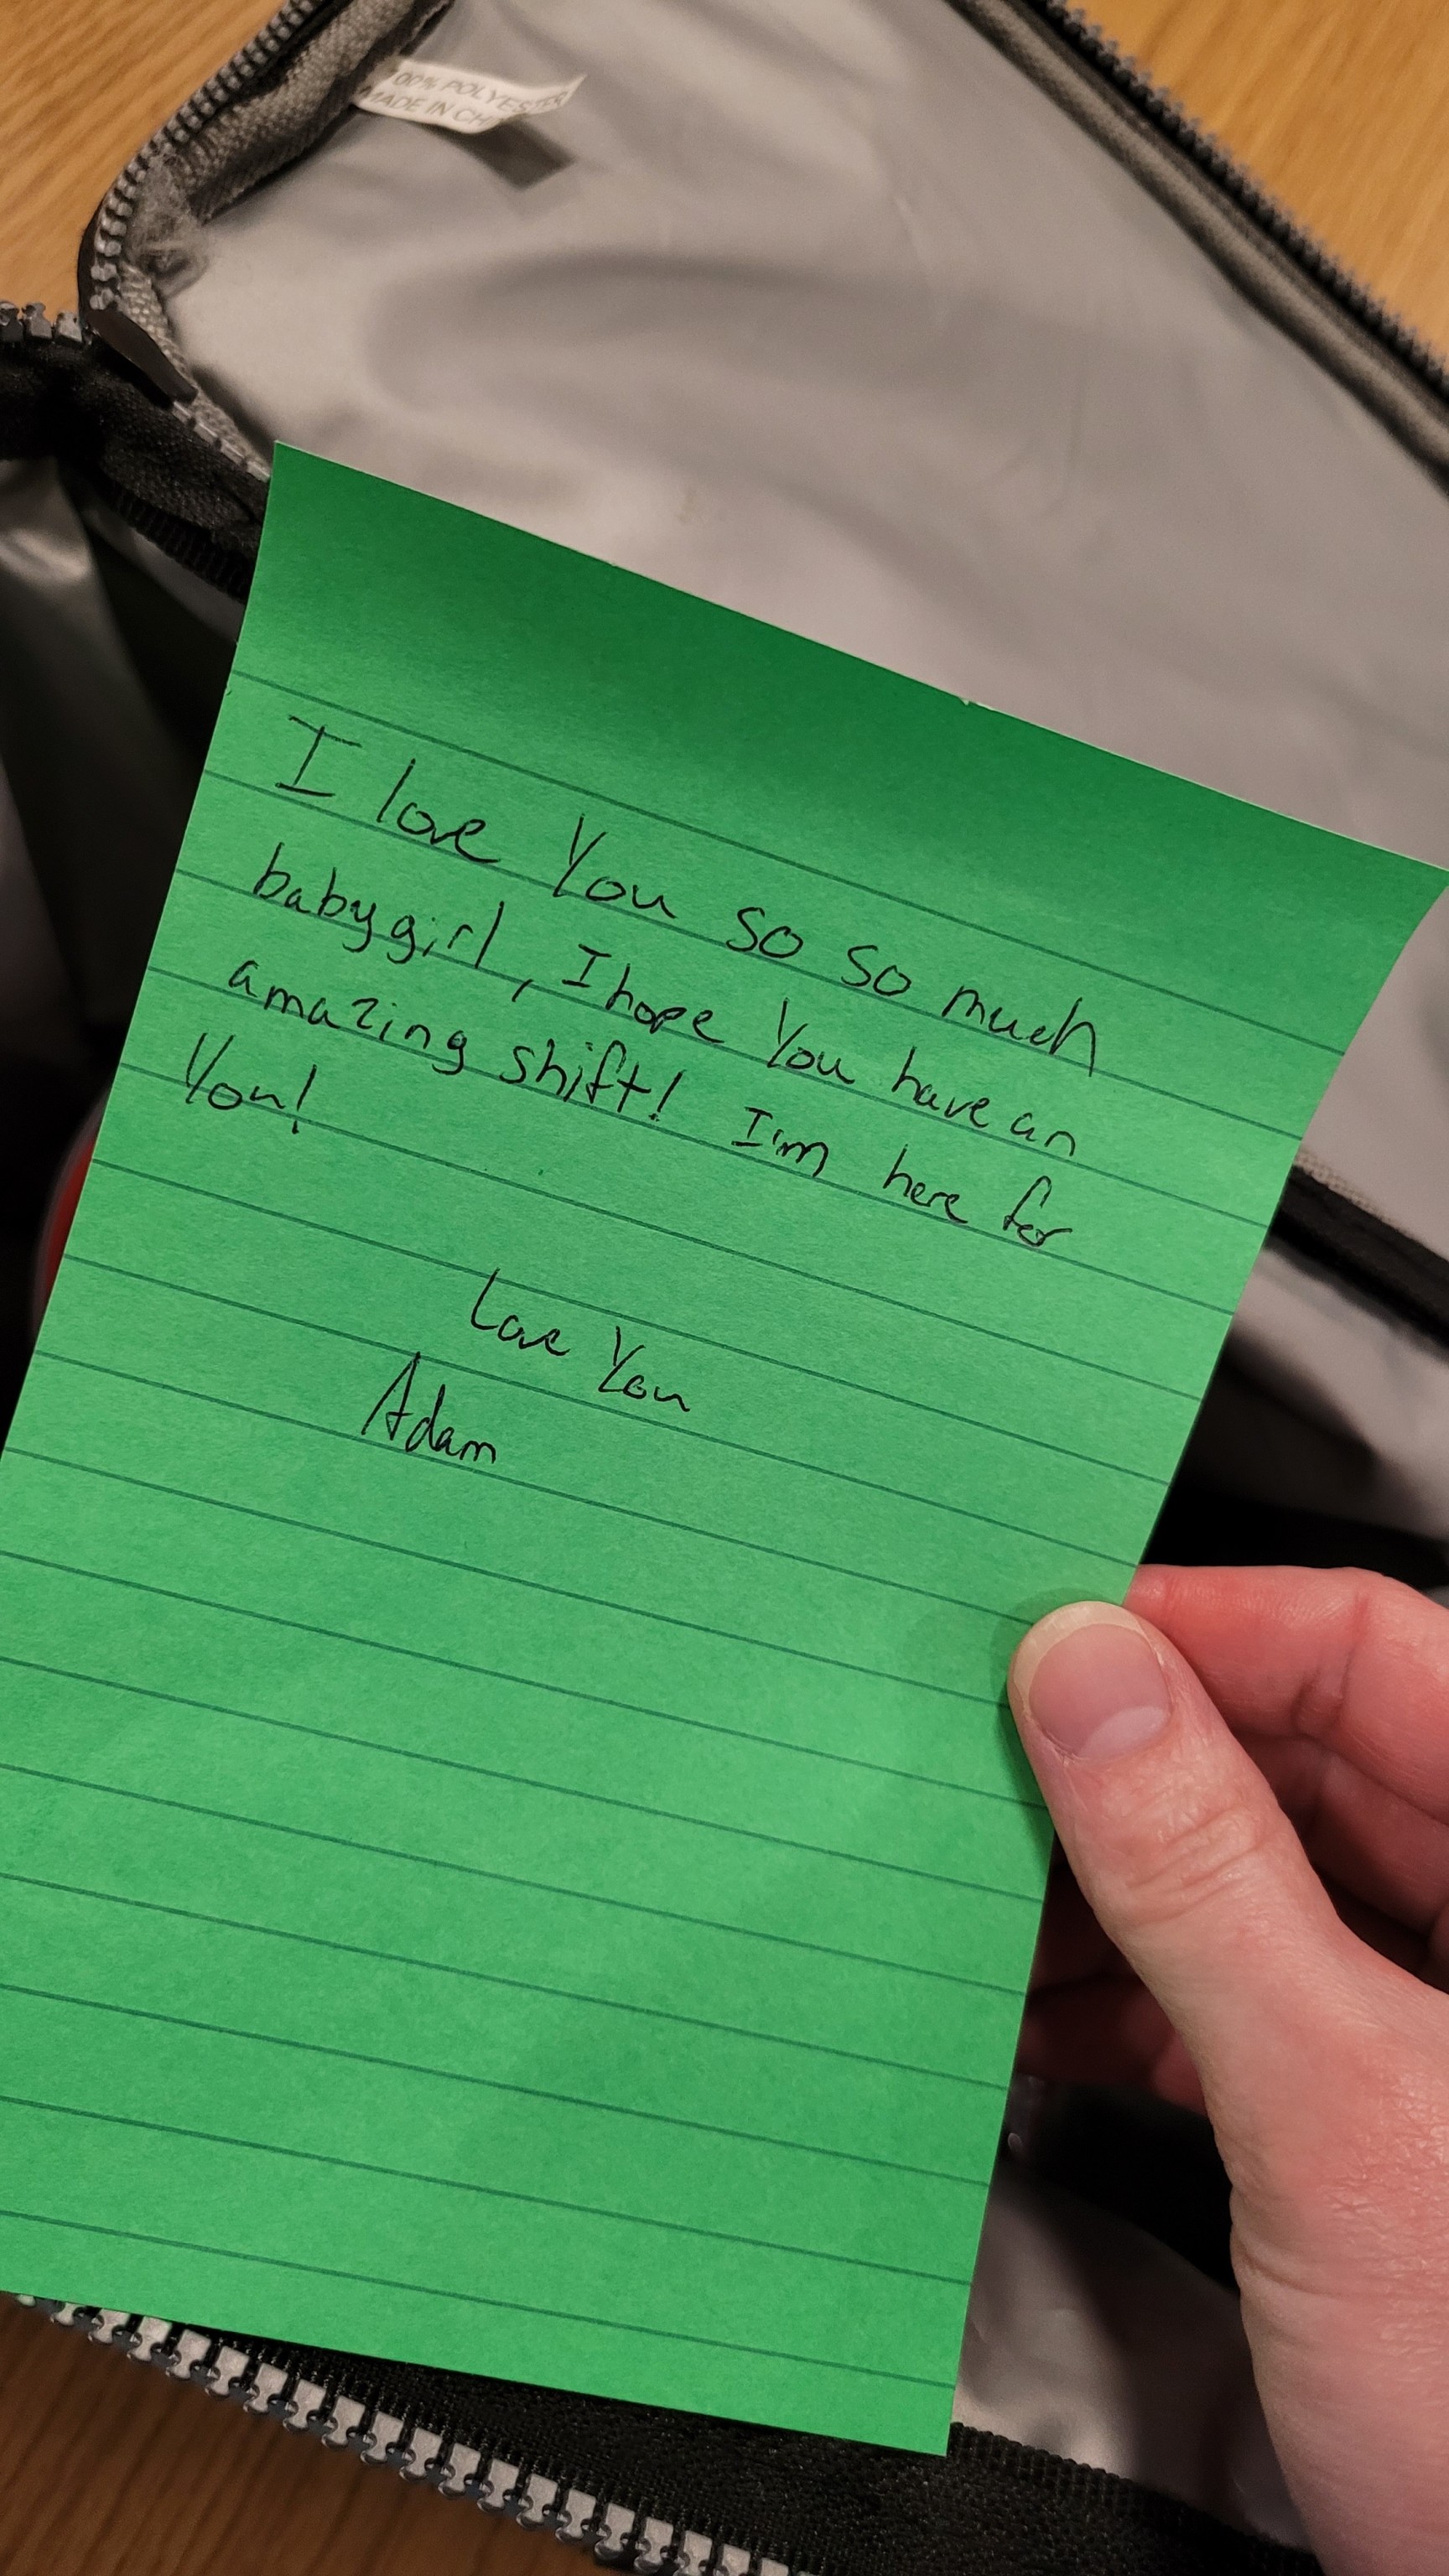 100% POLYESTER
MADE IN
I love You so so much
babygirl, I hope You have an
amazing shift! I'm here for
You!
Love You
Adam